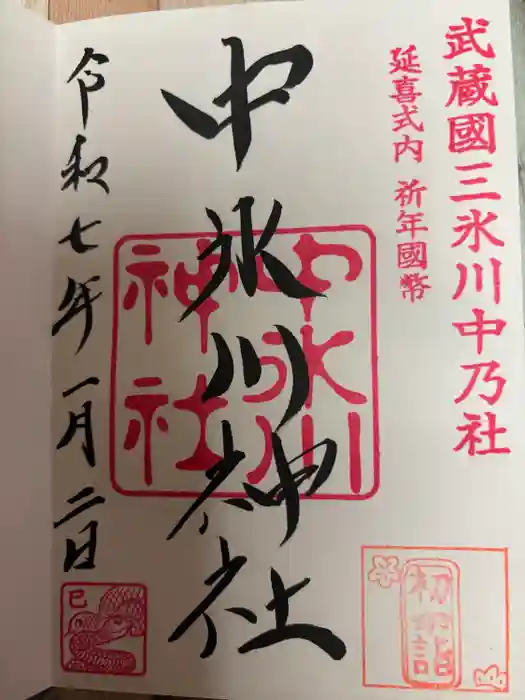 武蔵國三氷川中乃社
延喜式内 祈年國幣
中氷川神社
中氷川
神社
令和七年一月二日
巳
初詣